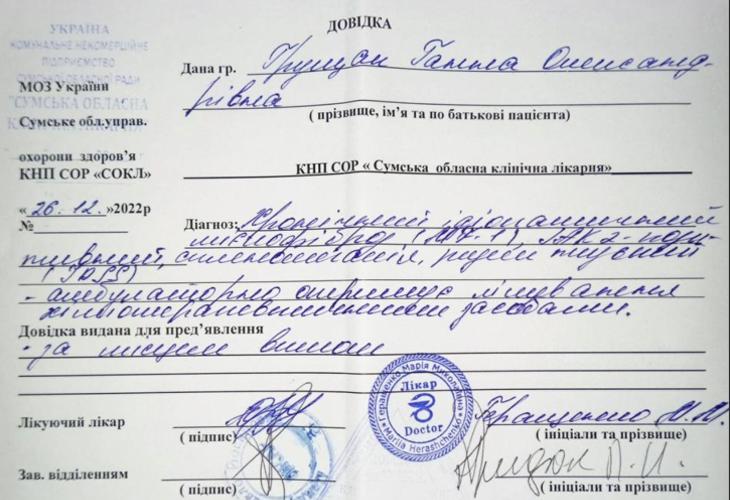 УКРАЇНА
КОМУНАЛЬНЕ НЕКОМЕРЦІЙНЕ
ПІДПРИЄМСТВО
СУМСЬКОЇ ОБЛАСНОЇ РАДИ
"СУМСЬКА ОБЛАСНА
КЛІНІЧНА ЛІКАРНЯ"
МОЗ України
Сумське обл.управ.
охорони здоров'я
КНП СОР «СОКЛ»
« 26. 12. »2022р
№
ДОВІДКА
Дана гр. Грищан Ганна Олександ-
рівна
( прізвище, ім'я та по батькові пацієнта)
КНП СОР « Сумська обласна клінічна лікарня»
Діагноз: Хронічний ідіопатичний
мієлофіброз, (MF-1), JAK 2- пози-
тивний, спленомегалія,
- амбулаторно отримує лікування
засобами.
Довідка видана для пред'явлення
- за місцем вимоги
Лікуючий лікар
( підпис)
Геращенко Марія Миколаївна
Лікар
Doctor
Mariia Herashchenko
Геращенко М.М.
( ініціали та прізвище)
Зав. відділенням
( підпис)
( ініціали та прізвище)